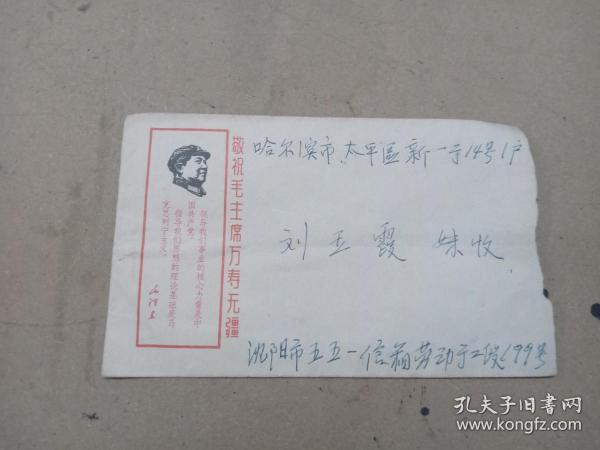 敬祝毛主席万寿无疆
领导我们事业的核心力量是中
国共产党。
指导我们思想的理论基础是马
克思列宁主义。
毛泽东
哈尔滨市太平區新一于14号1户
刘玉霞 妹收
沈阳市五五一信箱劳动于工段199号
孔夫子旧书网
www.kongfz.com